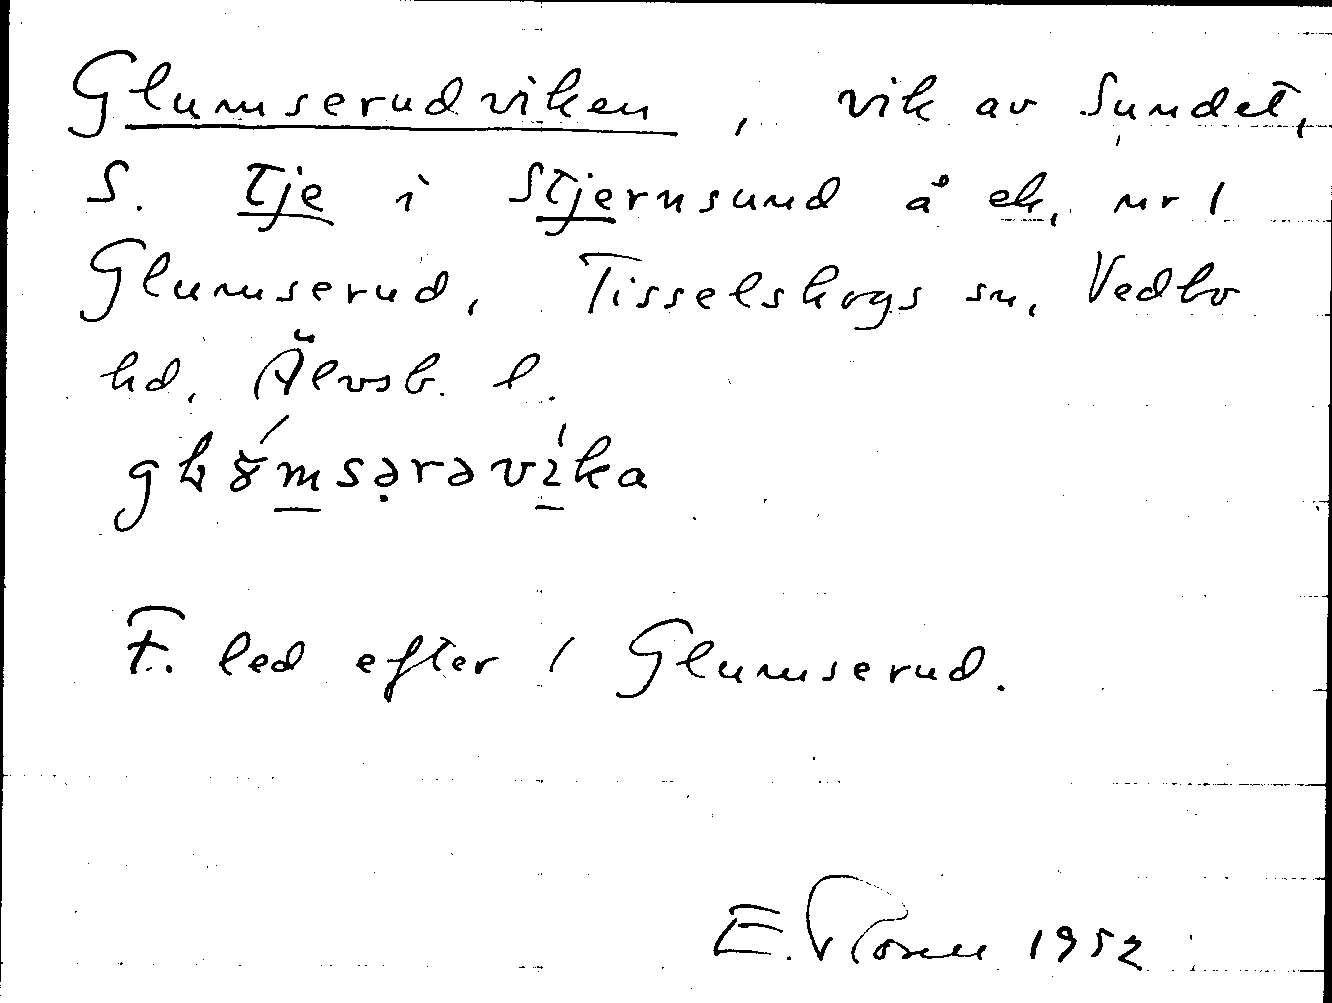 Glumserudviken, vik av Sundet,
S. tje i Stjernsund å ek. nr 1
Glumserud, Tisselskogs sn, Vedbo
hd, Älvsb. l.
F. led efter 1 Glumserud.
E. 1952